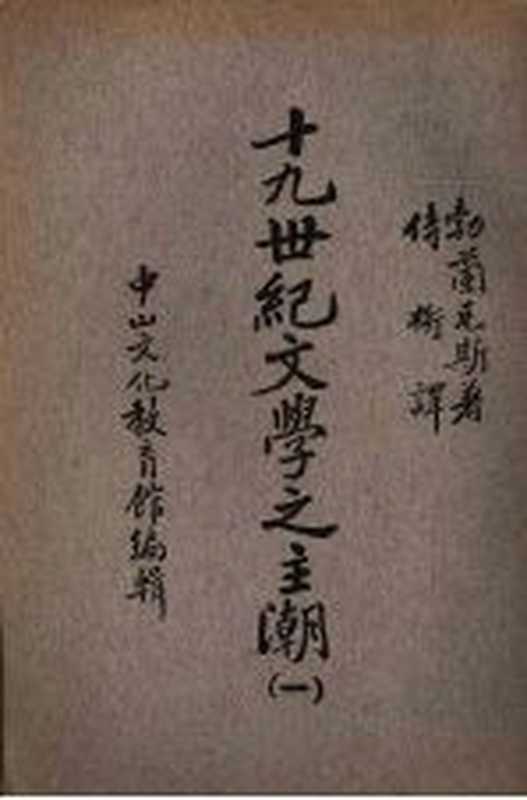 勃蘭克斯著
侍桁譯
十九世紀文學之主潮
(一)
中山文化教育館編輯